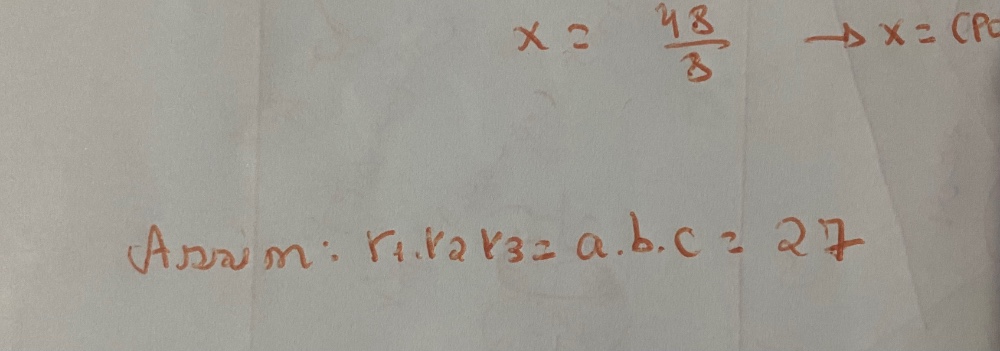 x = 48/8 → x = CP
Assim: r1.r2 r3 = a.b.c = 27